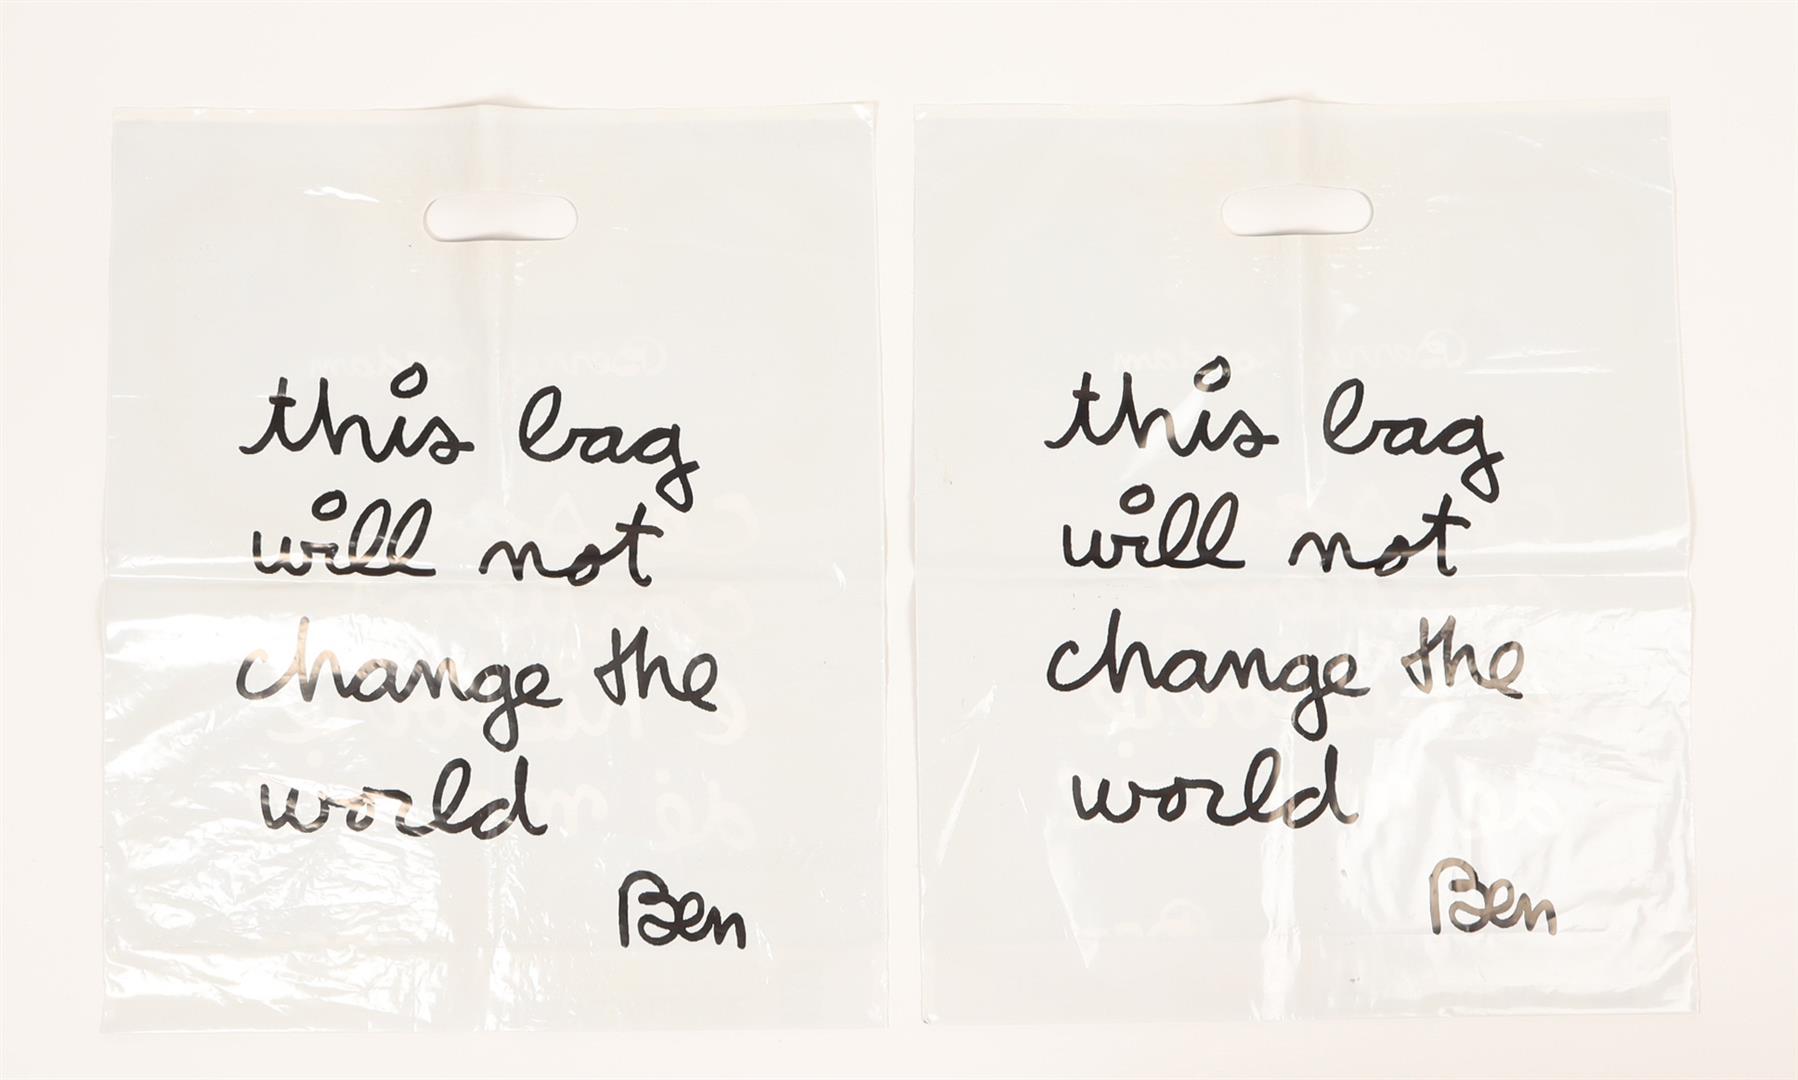 this bag
will not
change the
world
Ben
this bag
will not
change the
world
Ben